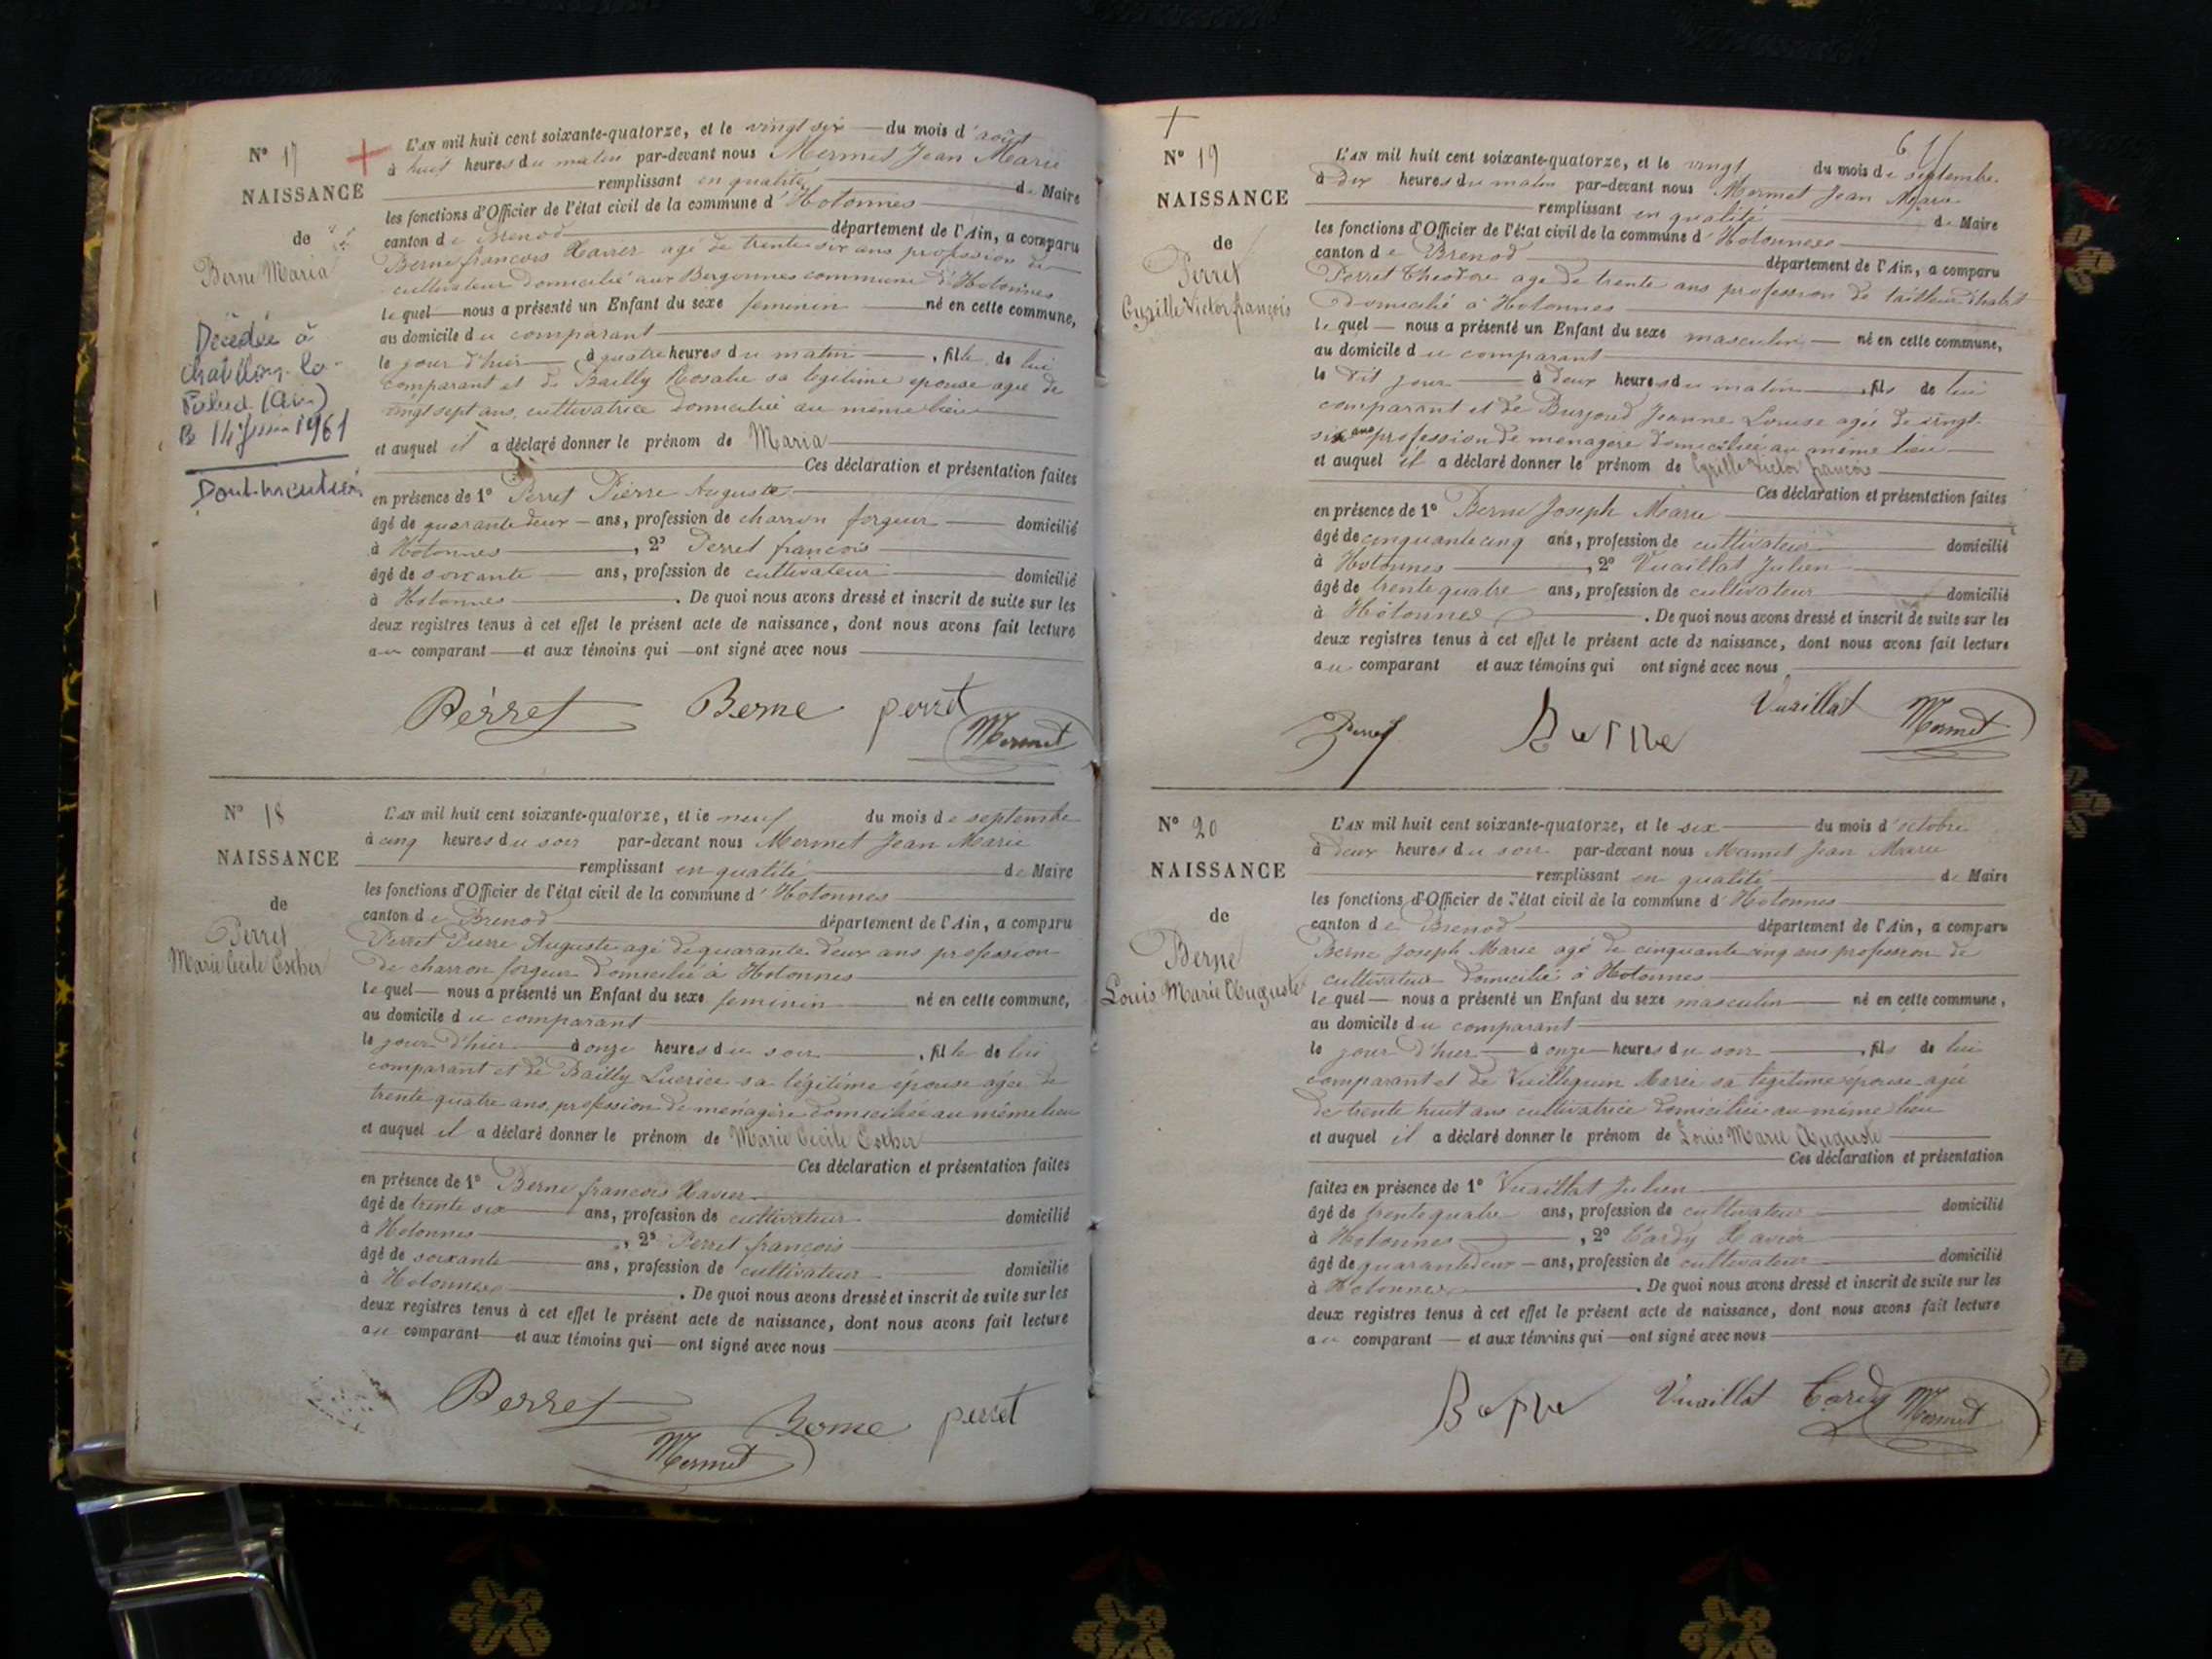 N° 17
NAISSANCE
de
Berne Maria
Décédée à
Chatillon-la-
Palud (Ain)
le 14 1961
Dont mention
L'AN mil huit cent soixante-quatorze, et le vingt six du mois d'août
à huit heures du matin par-devant nous Mermet Jean Marie
remplissant en qualité de Maire
les fonctions d'Officier de l'état civil de la commune d'Hotonnes
canton de Brenod département de l'Ain, a comparu
Berne françois Xavier agé de trente six ans profession de
cultivateur domicilié aux Bergonnes commune d'Hotonnes
lequel nous a présenté un Enfant du sexe feminin né en cette commune,
au domicile du comparant
le jour d'hier à quatre heures du matin, fille de lui
comparant et de Bailly Rosalie sa legitime épouse agée de
vingt sept ans, cultivatrice domiciliée au même lieu
et auquel il a déclaré donner le prénom de Maria
Ces déclaration et présentation faites
en présence de 1° Perret Pierre Auguste
âgé de quarante deux ans, profession de charron forgeur domicilié
à Hotonnes, 2° Perret françois
âgé de soixante ans, profession de cultivateur domicilié
à Hotonnes. De quoi nous avons dressé et inscrit de suite sur les
deux registres tenus à cet effet le présent acte de naissance, dont nous avons fait lecture
au comparant et aux témoins qui ont signé avec nous
Perret Berne perret
Mermet
N° 18
NAISSANCE
de
Perret
Marie Cécile Esther
L'AN mil huit cent soixante-quatorze, et le neuf du mois de septembre
à cinq heures du soir par-devant nous Mermet Jean Marie
remplissant en qualité de Maire
les fonctions d'Officier de l'état civil de la commune d'Hotonnes
canton de Brenod département de l'Ain, a comparu
Perret Pierre Auguste agé de quarante deux ans profession
de charron forgeur domicilié à Hotonnes
lequel nous a présenté un Enfant du sexe feminin né en cette commune,
au domicile du comparant
le jour d'hier à onze heures du soir, fille de lui
comparant et de Bailly sa légitime épouse agée de
trente quatre ans profession de ménagère domiciliée au même lieu
et auquel il a déclaré donner le prénom de Marie Cécile Esther
Ces déclaration et présentation faites
en présence de 1° Berne françois Xavier
âgé de trente six ans, profession de cultivateur domicilié
à Hotonnes, 2° Perret françois
âgé de soixante ans, profession de cultivateur domicilié
à Hotonnes. De quoi nous avons dressé et inscrit de suite sur les
deux registres tenus à cet effet le présent acte de naissance, dont nous avons fait lecture
au comparant et aux témoins qui ont signé avec nous
Perret Berne perret
Mermet
N° 19
NAISSANCE
de
Perret
Cyrille Victor françois
L'AN mil huit cent soixante-quatorze, et le vingt du mois de septembre
à dix heures du matin par-devant nous Mermet Jean Marie
remplissant en qualité de Maire
les fonctions d'Officier de l'état civil de la commune d'Hotonnes
canton de Brenod département de l'Ain, a comparu
Perret Théodore agé de trente ans profession de tailleur d'habit
domicilié à Hotonnes
lequel nous a présenté un Enfant du sexe masculin né en cette commune,
au domicile du comparant
le dit jour à deux heures du matin, fils de lui
comparant et de Burjoud Jeanne Louise agée de vingt
six ans profession de menagere domiciliée au même lieu
et auquel il a déclaré donner le prénom de Cyrille Victor françois
Ces déclaration et présentation faites
en présence de 1° Berne Joseph Marie
âgé de cinquante cinq ans, profession de cultivateur domicilié
à Hotonnes, 2° Vuaillat Julien
âgé de trente quatre ans, profession de cultivateur domicilié
à Hotonnes. De quoi nous avons dressé et inscrit de suite sur les
deux registres tenus à cet effet le présent acte de naissance, dont nous avons fait lecture
au comparant et aux témoins qui ont signé avec nous
Perret Berne Vuaillat Mermet
N° 20
NAISSANCE
de
Berne
Louis Marie Auguste
L'AN mil huit cent soixante-quatorze, et le six du mois d'octobre
à deux heures du soir par-devant nous Mermet Jean Marie
remplissant en qualité de Maire
les fonctions d'Officier de l'état civil de la commune d'Hotonnes
canton de Brenod département de l'Ain, a comparu
Berne Joseph Marie agé de cinquante cinq ans profession de
cultivateur domicilié à Hotonnes
lequel nous a présenté un Enfant du sexe masculin né en cette commune,
au domicile du comparant
le jour d'hier à onze heures du soir, fils de lui
comparant et de Vuillequin Marie sa légitime épouse agée
de trente huit ans cultivatrice domiciliée au même lieu
et auquel il a déclaré donner le prénom de Louis Marie Auguste
Ces déclaration et présentation
faites en présence de 1° Vuaillat Julien
âgé de trente quatre ans, profession de cultivateur domicilié
à Hotonnes, 2° Cardy Xavier
âgé de quarante deux ans, profession de cultivateur domicilié
à Hotonnes. De quoi nous avons dressé et inscrit de suite sur les
deux registres tenus à cet effet le présent acte de naissance, dont nous avons fait lecture
au comparant et aux témoins qui ont signé avec nous
Berne Vuaillat Cardy Mermet